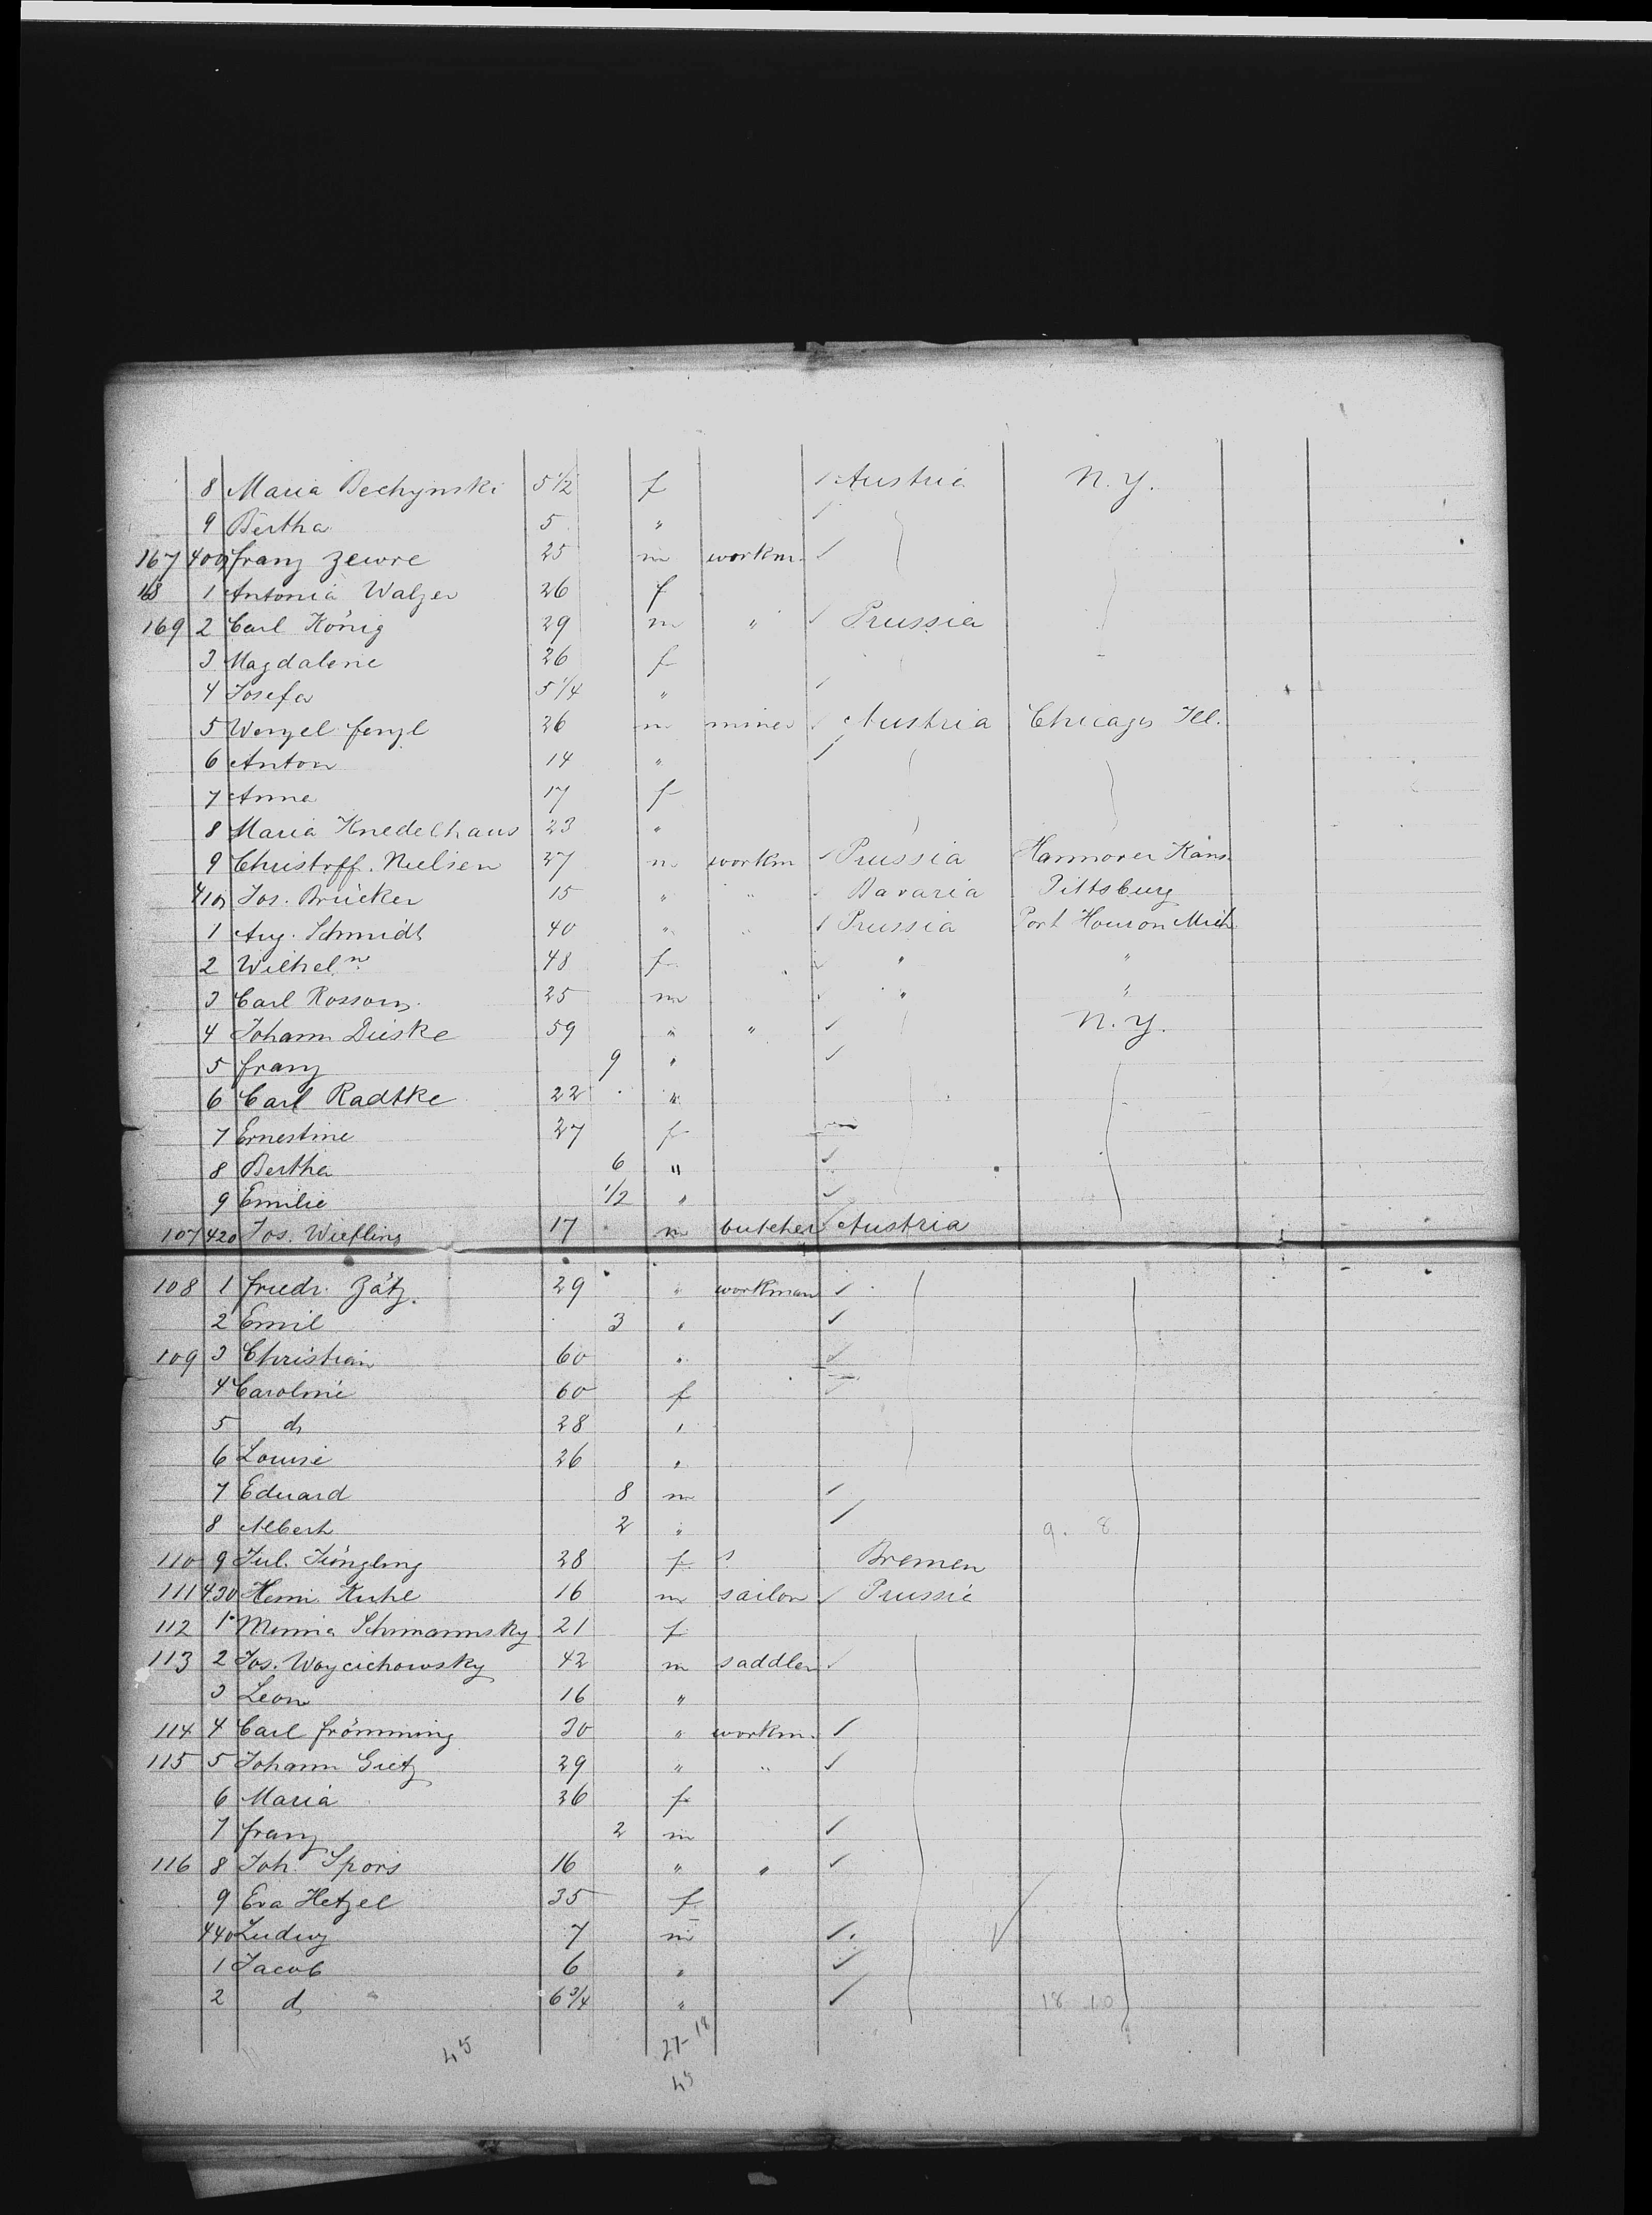 8 Maria Bechynski 5 1/2 f Austria N.Y.
9 Bertha 5 "
167 400 Franz Zewre 25 m workm.
168 1 Antonia Walzer 26 f
169 2 Carl König 29 m " Prussia
3 Magdalene 26 f
4 Josefa 5 1/4 "
5 Wenzel Fenzl 26 m miner Austria Chicago Ill.
6 Anton 14 "
7 Anna 17 f
8 Maria Knedelhaus 23 "
9 Christoff. Nielsen 27 m workm Prussia Hannover Kans.
410 Jos. Brücker 15 " " Bavaria Pittsburg
1 Aug. Schmidt 40 " " Prussia Port Houron Mich
2 Wilhel.ne 48 f " "
3 Carl Rossow 25 m " "
4 Johann Duske 59 " " N.Y.
5 Franz 9 "
6 Carl Radtke 22 "
7 Ernestine 27 f
8 Bertha 6 "
9 Emilie 1/2 "
107 420 Jos. Wiefling 17 m butcher Austria
108 1 Friedr. Zätz. 29 " workman
2 Emil 3 "
109 3 Christian 60 "
4 Caroline 60 f
5 do 28 "
6 Louise 26 "
7 Eduard 8 m
8 Albert 2 " 9. 8
110 9 Jul. Jüngling 28 f Bremen
111 430 Henri Kuhl 16 m sailor Prussia
112 1 Minna Schimannsky 21 f
113 2 Jos. Woycichowsky 42 m saddler
3 Leon 16 "
114 4 Carl Frömming 30 " workm.
115 5 Johann Gietz 29 " "
6 Maria 26 f
7 Franz 2 m
116 8 Joh. Spors 16 " "
9 Eva Hetzel 35 f
440 Ludwig 7 m
1 Jacob 6 "
2 do 6 3/4 " 18 10
45 27-18
45